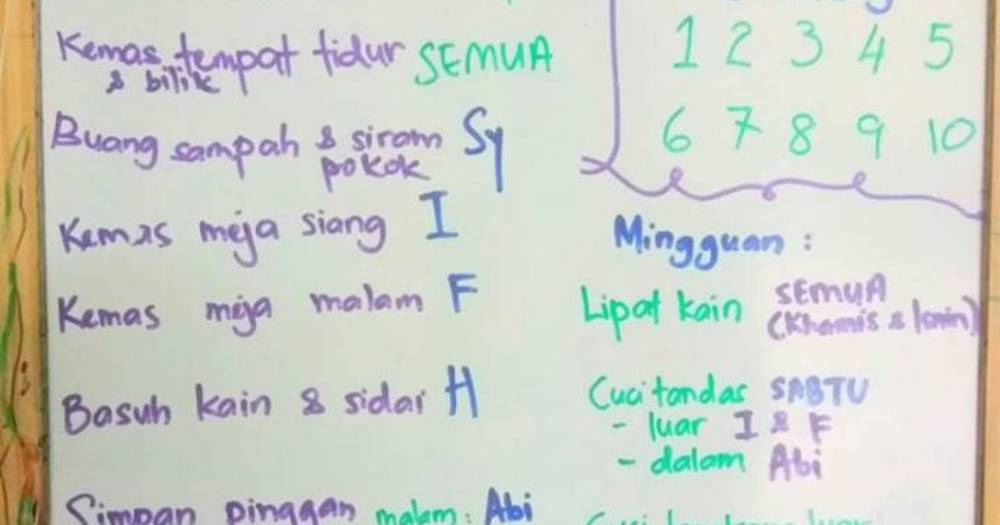 Kemas tempat tidur SEMUA
& bilik
Buang sampah & siram Sy
pokok
Kemas meja siang I
Kemas meja malam F
Basuh kain & sidai H
Simpan pinggan malam: Abi
1 2 3 4 5
6 7 8 9 10
Mingguan :
Lipat kain SEMUA
(Khamis & Isnin)
Cuci tandas SABTU
- luar I & F
- dalam Abi